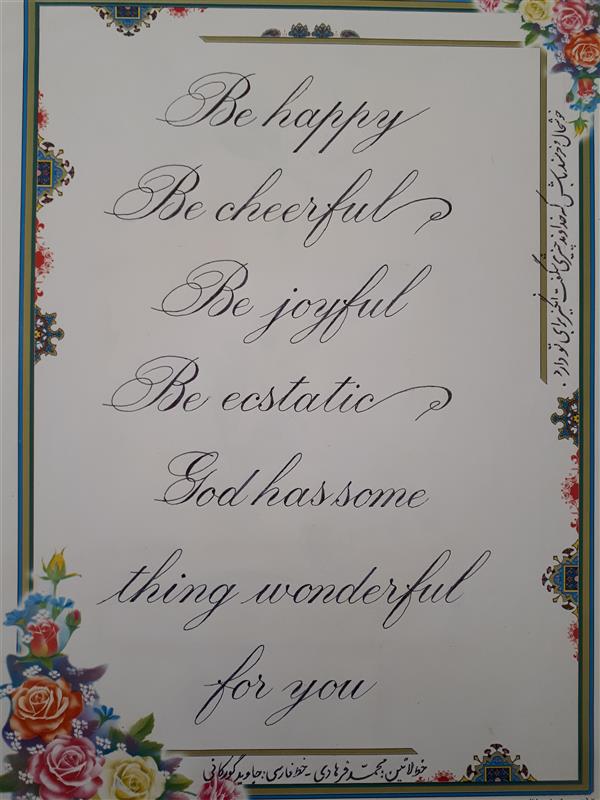 Be happy
Be cheerful
Be joyful
Be ecstatic
God has some
thing wonderful
for you
خوشحال و خرسند باش که خداوند چیزی شگفت انگیز برای تو دارد .
خط لاتین : محمد فرهادی - خط فارسی : جاوید گورکانی